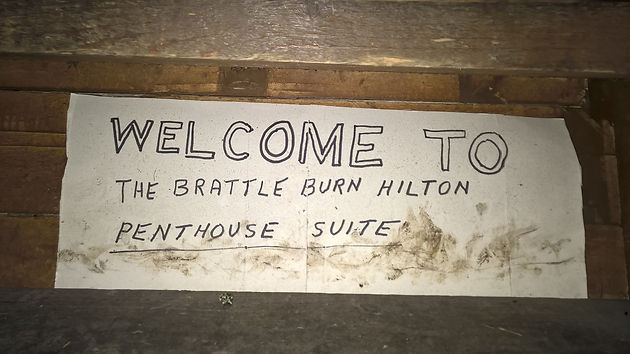 WELCOME TO
THE BRATTLE BURN HILTON
PENTHOUSE SUITE